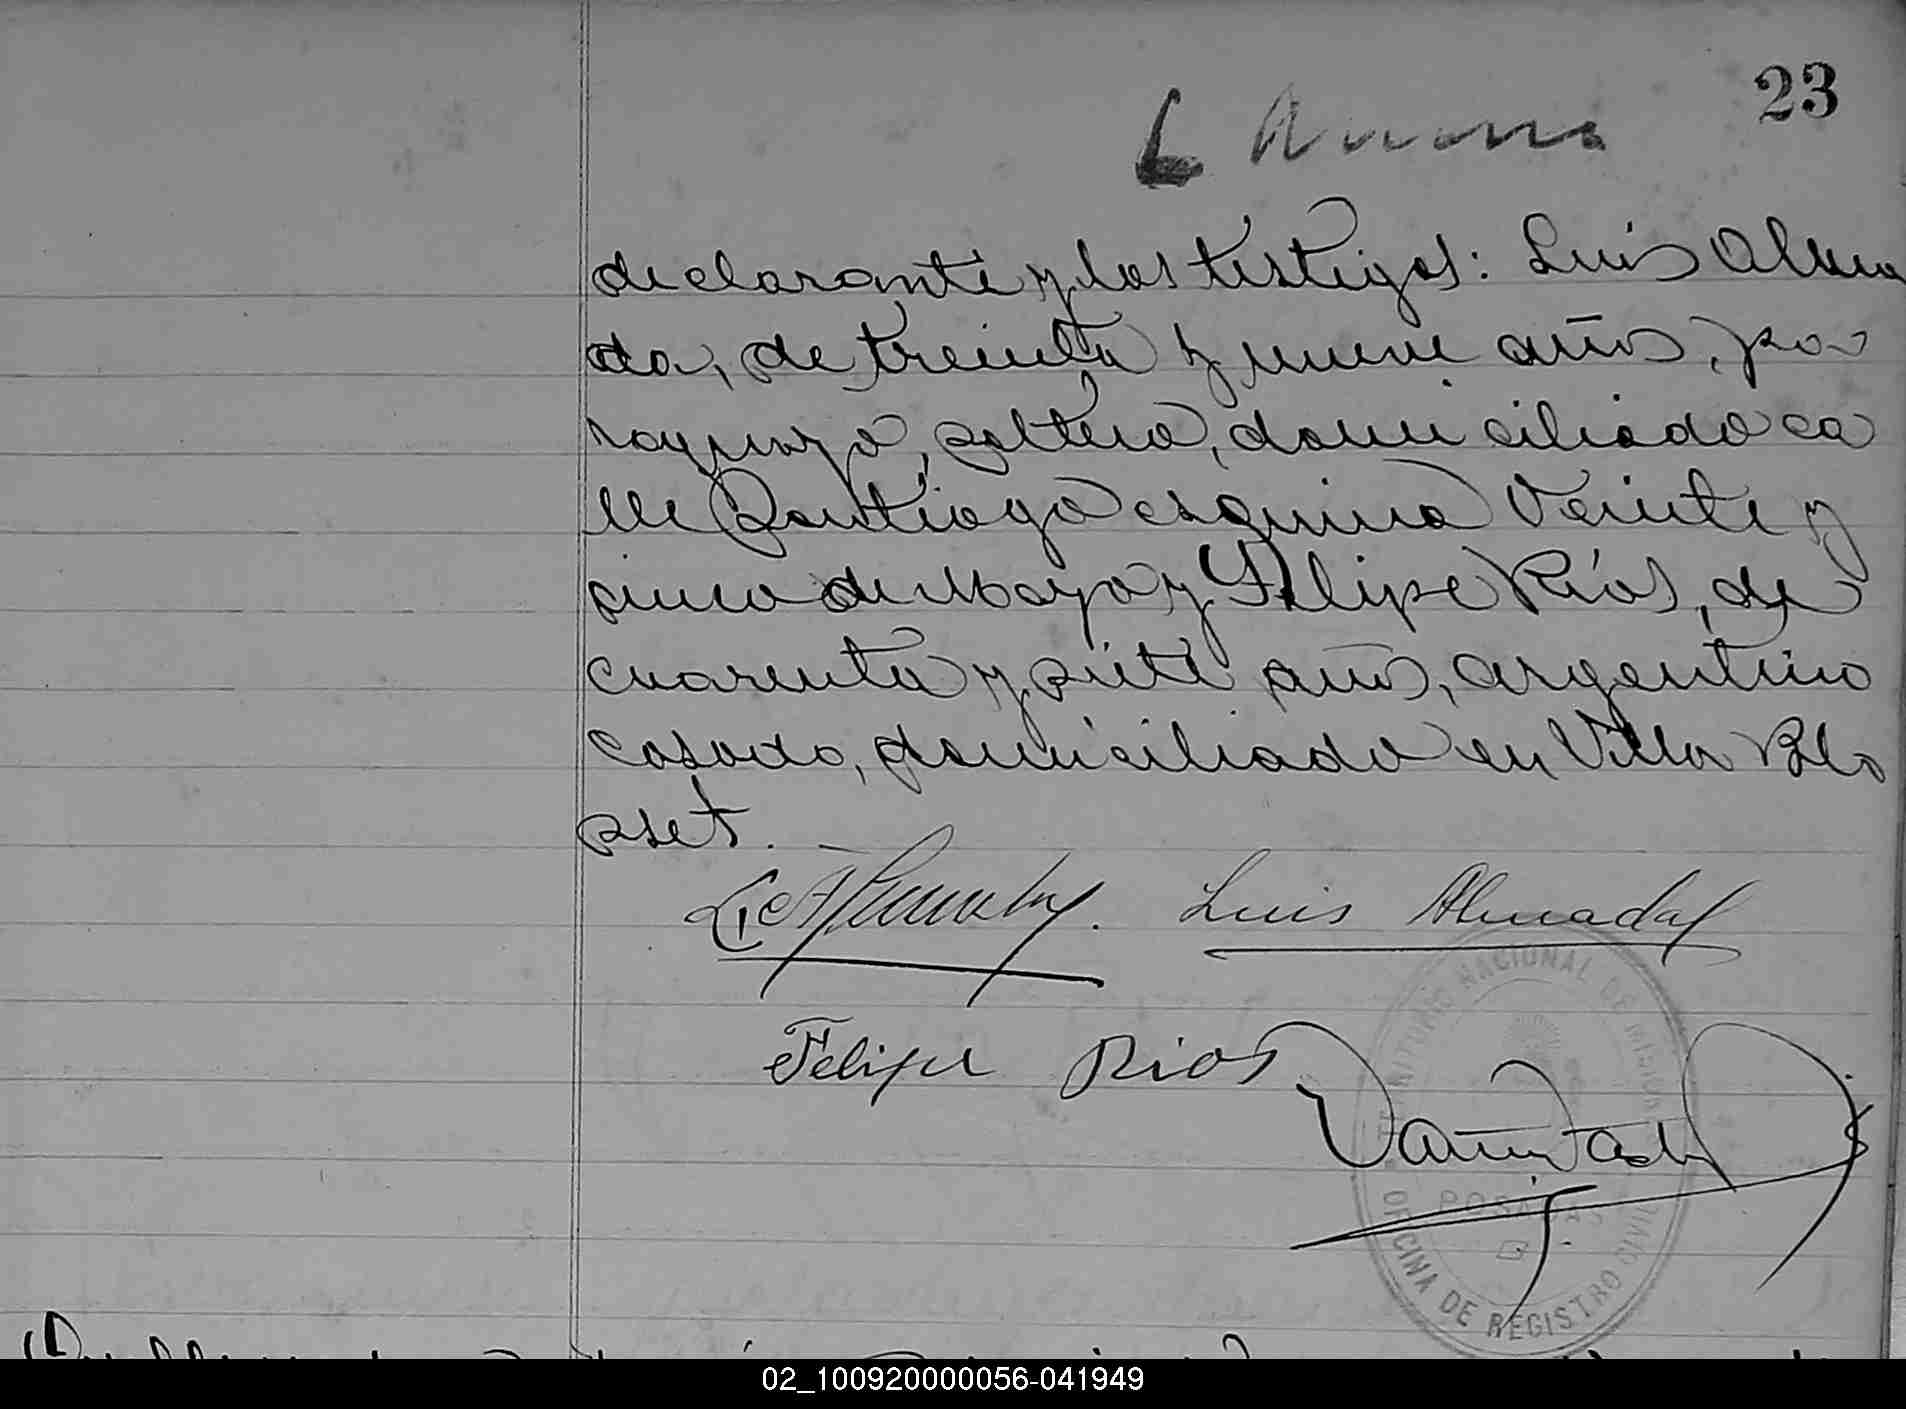 23
declarante y los testigos: Luis Alma
da, de treinta y nueve años, pa
raguayo, soltero, domiciliado ca
lle Santiago esquina Veinte y
cinco de Mayo y Felipe Ríos, de
cuarenta y siete años, argentino
casado, domiciliado en Villa Blo
sset.
Luis Almada
Felipe Rios
TERRITORIO NACIONAL DE MISIONES
POSADAS
OFICINA DE REGISTRO CIVIL
02_100920000056-041949